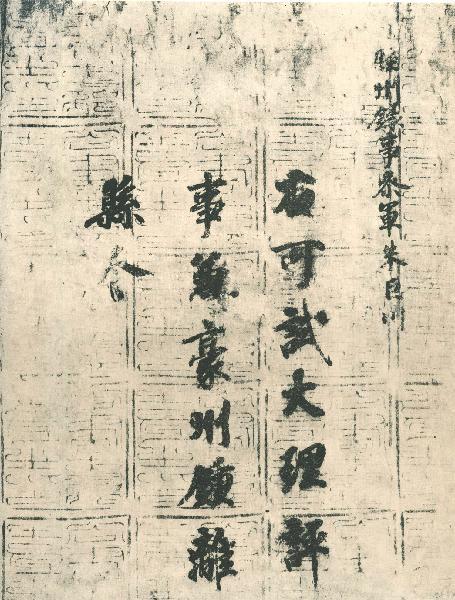 睦州録事叅軍朱巨川
右可試大理評
事兼豪州鍾離
縣令